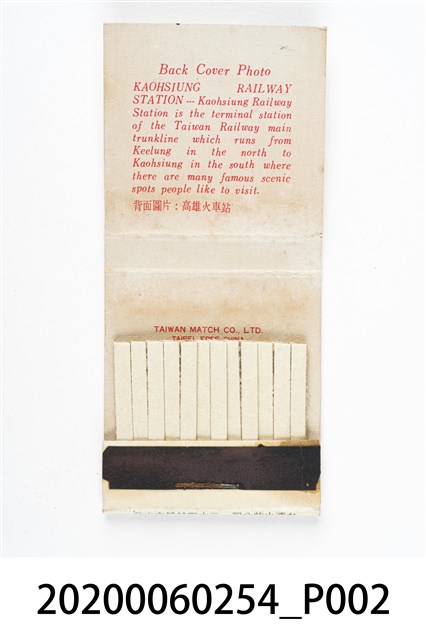 Back Cover Photo
KAOHSIUNG RAILWAY
STATION --- Kaohsiung Railway
Station is the terminal station
of the Taiwan Railway main
trunkline which runs from
Keelung in the north to
Kaohsiung in the south where
there are many famous scenic
spots people like to visit.
背面圖片：高雄火車站
TAIWAN MATCH CO., LTD.
TAIPEI FREE CHINA
20200060254_P002